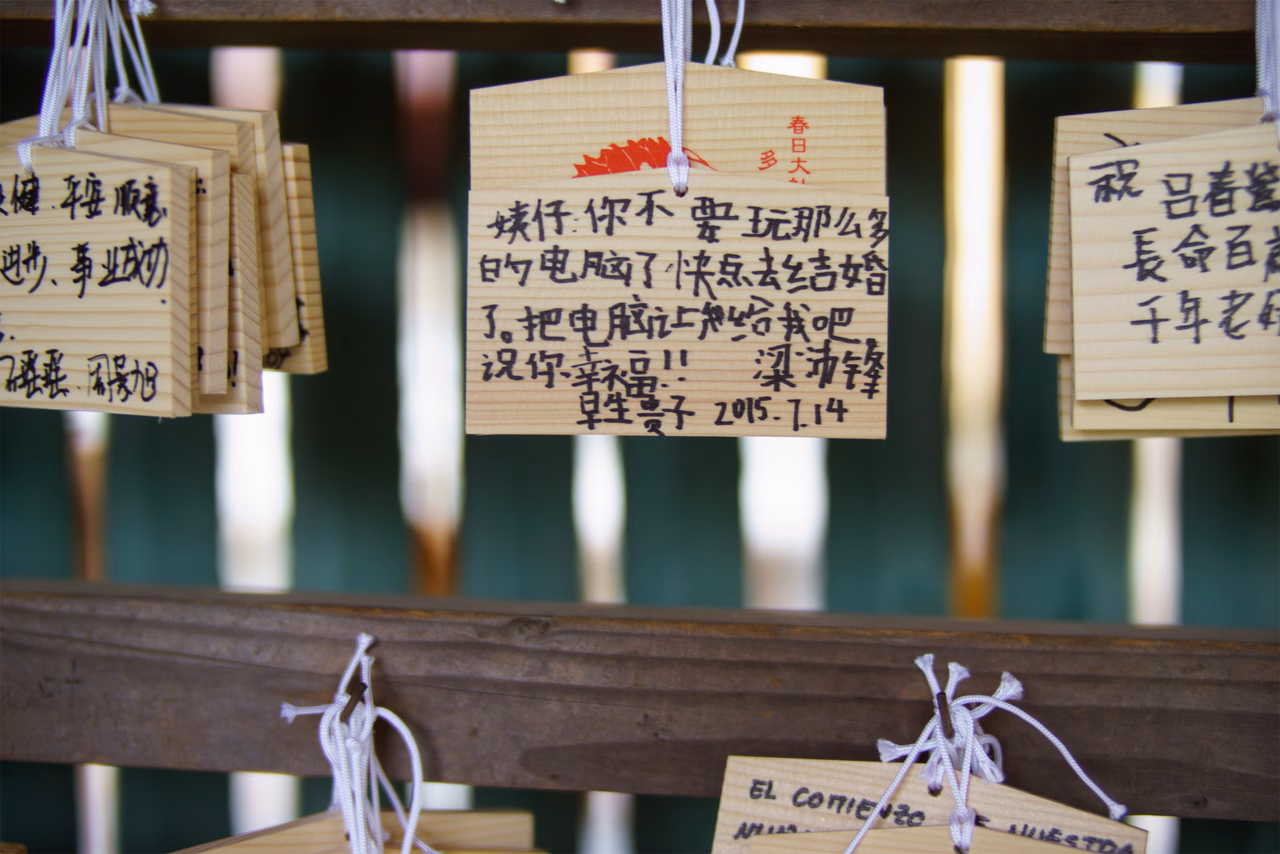 健 平安 顺意
进步、事业成功
春日大社
多
姨仔:你不要玩那么多
的电脑了快点去结婚
了。把电脑让上给我吧
祝你幸福!! 梁沛锋
早生贵子 2015.7.14
祝 吕春
長命百歲
千年老
EL COMIENZO DE NUESTRA